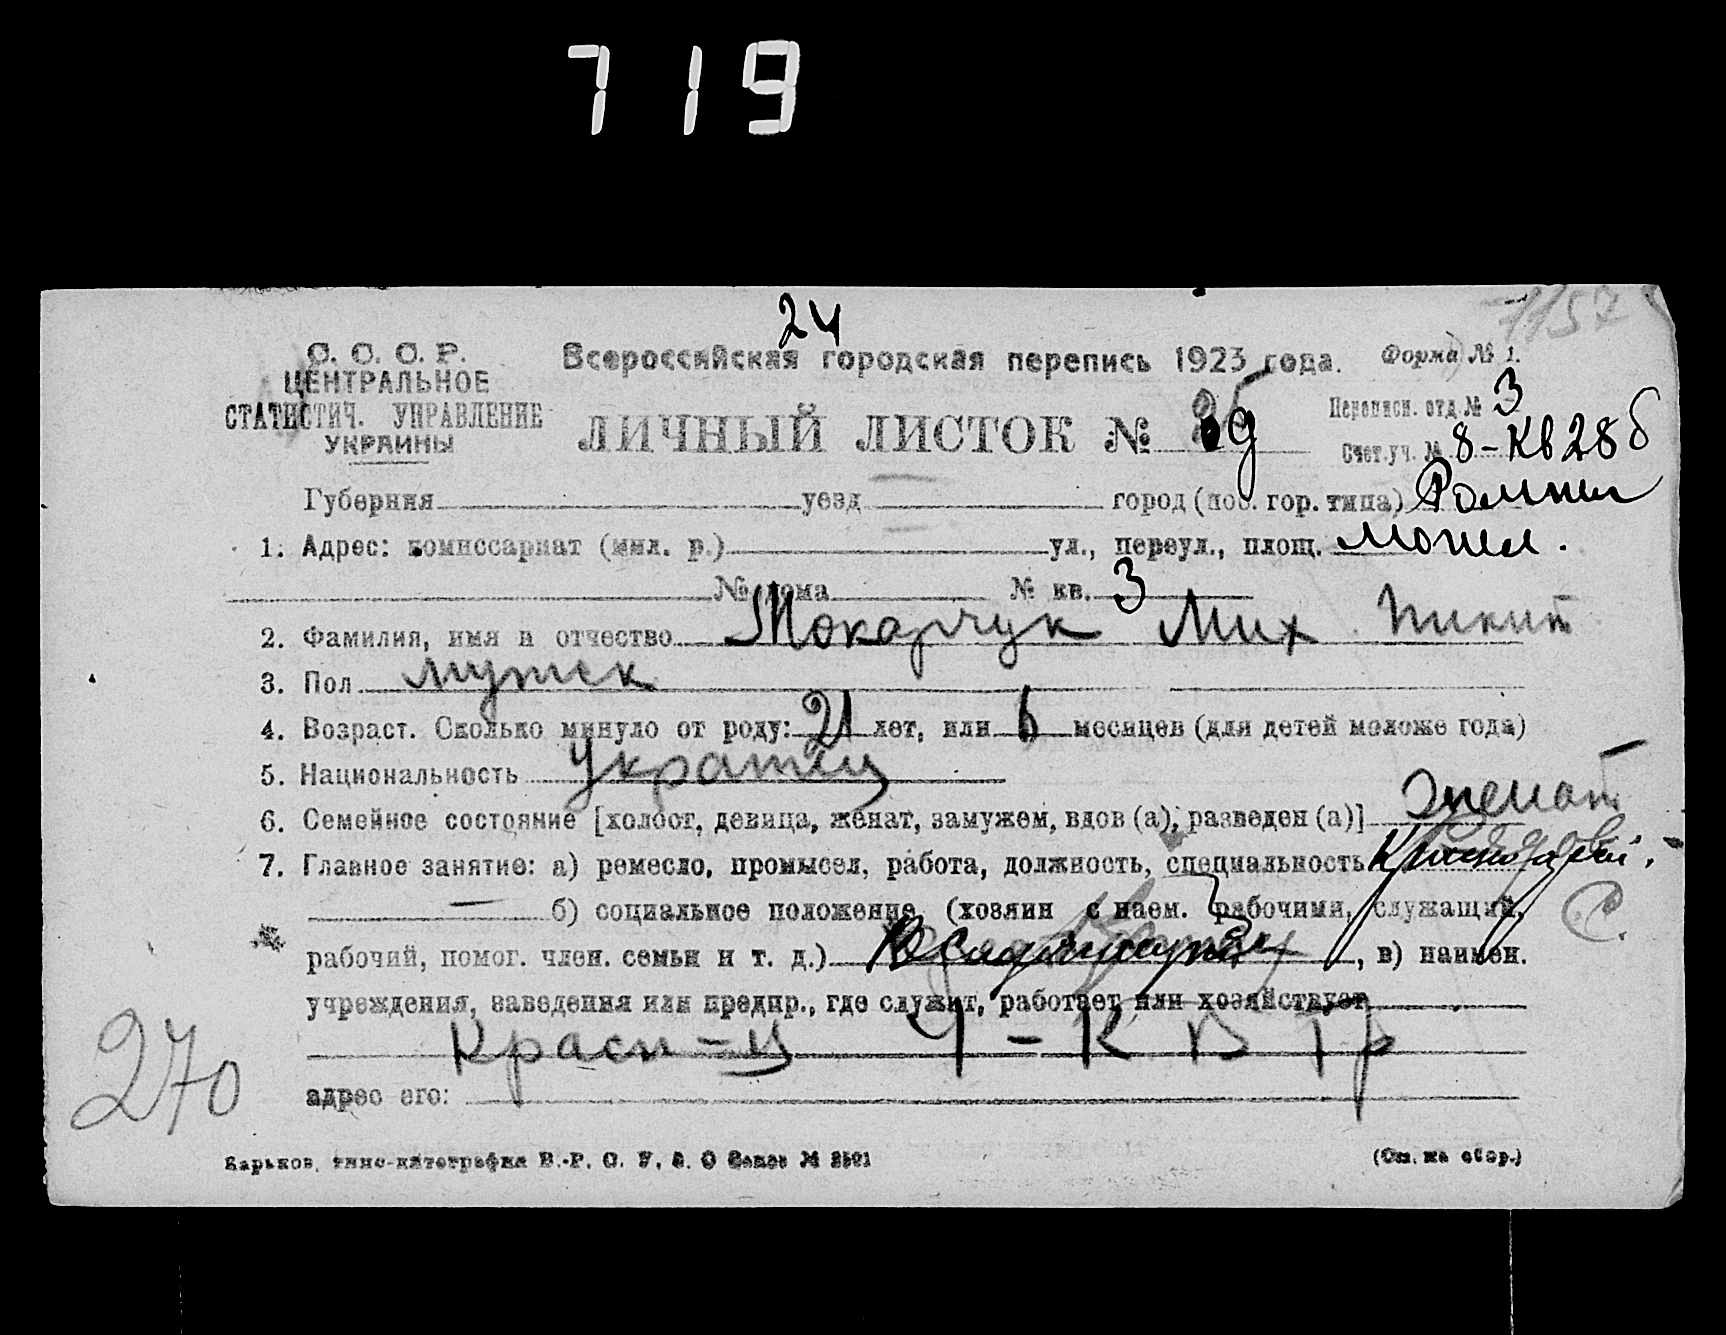 719
1157
24
С. С. С. Р.
ЦЕНТРАЛЬНОЕ
СТАТИСТИЧ. УПРАВЛЕНИЕ
УКРАИНЫ
Всероссийская городская перепись 1923 года.
Форма № 1.
ЛИЧНЫЙ ЛИСТОК №
Переписн. отд. № 3
Счет. уч. № 8-кв 28б
Губерния уезд город (пос. гор. типа) Ромны
1. Адрес: комиссариат (мил. р.) ул., переул., площ.
№ дома № кв. 3
2. Фамилия, имя и отчество Мокарчук Мих Никит
3. Пол мужск
4. Возраст. Сколько минуло от роду: 21 лет, или 6 месяцев (для детей моложе года)
5. Национальность
6. Семейное состояние [холост, девица, женат, замужем, вдов (а), разведен (а)] женат
7. Главное занятие: а) ремесло, промысел, работа, должность, специальность
б) социальное положение (хозяин с наем. рабочими, служащий,
рабочий, помог. член. семьи и т. д.) , в) наимен.
учреждения, заведения или предпр., где служит, работает или хозяйствует
Красн-ц 4-К В Тр
адрес его:
270
(См. на обор.)